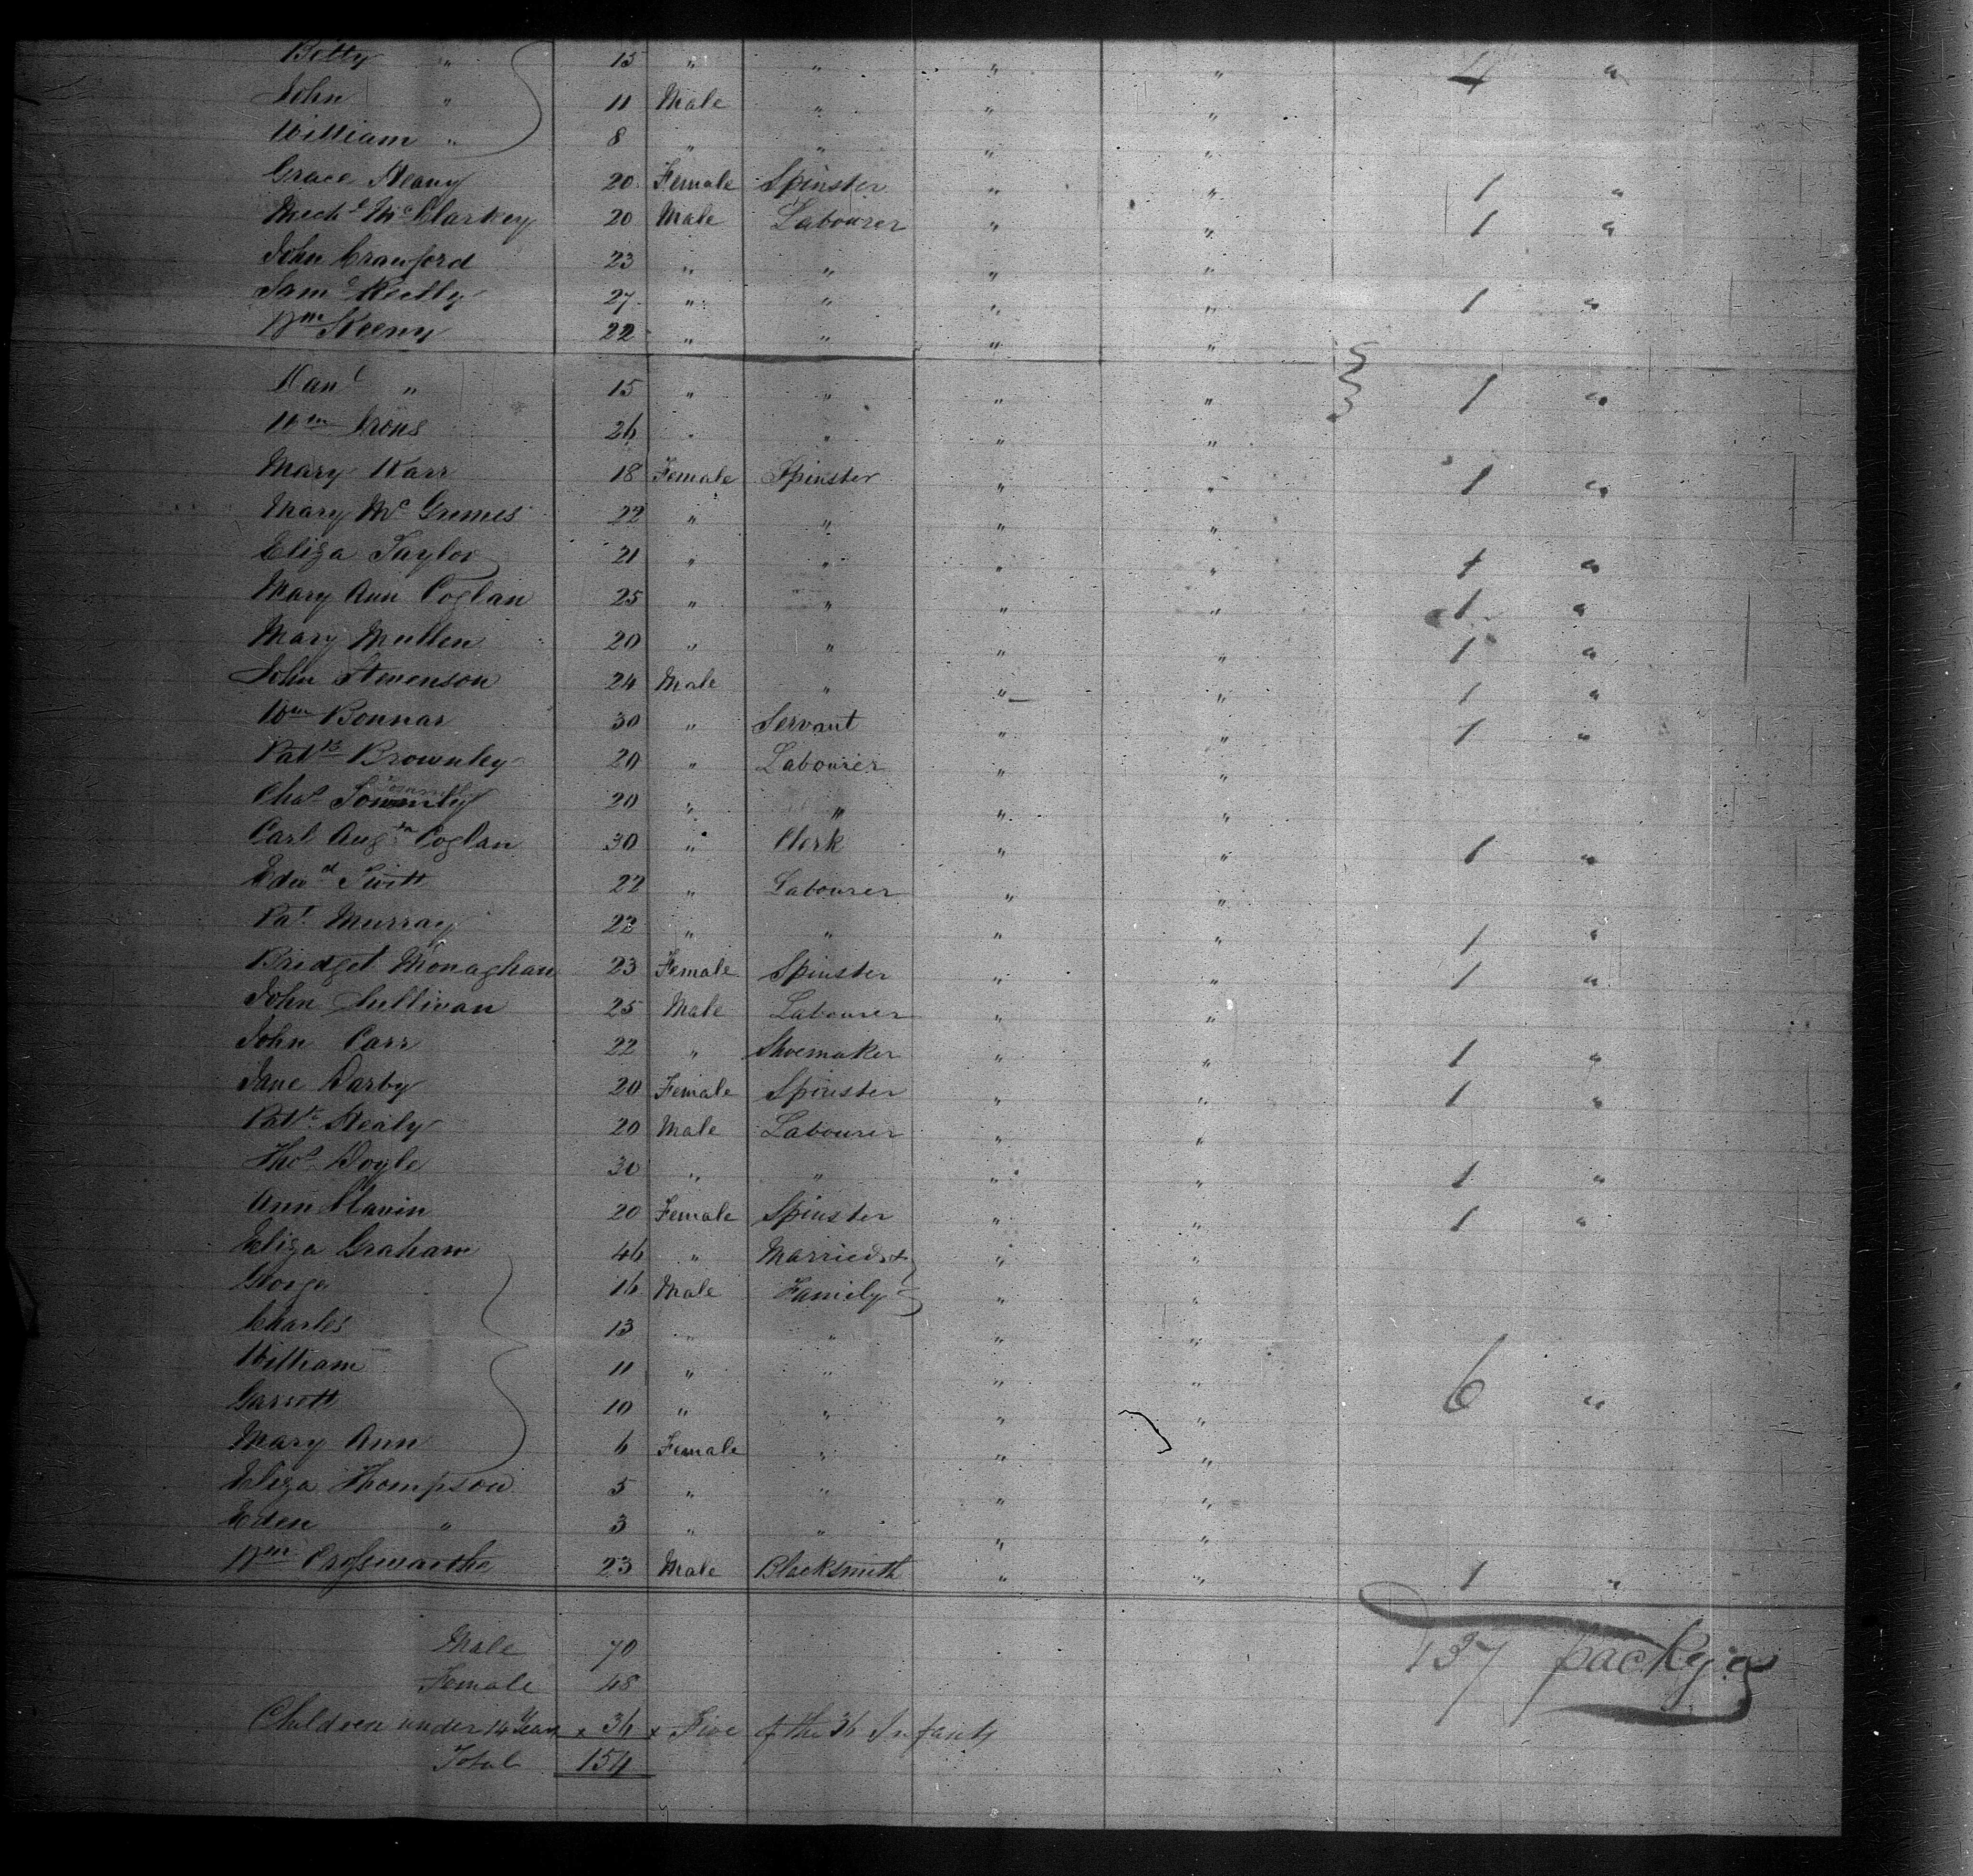 Betty " 15 " " " " 4 "
John " 11 Male " " "
William " 8 " " " "
Grace Heany 20 Female Spinster " " 1 "
Mich.l McClarkey 20 Male Labourer " " 1 "
John Crawford 23 " " " "
Sam.l Reilly 27 " " " " 1 "
Wm Keeny 22 " " " "
Dan.l " 15 " " " " 1 "
Wm Irons 26 " " " "
Mary Karr 18 Female Spinster " " 1 "
Mary Mc Grimes 22 " " " "
Eliza Taylor 21 " " " " 1 "
Mary Ann Coglan 25 " " " " 1 "
Mary Mullen 20 " " " " 1 "
John Stevenson 24 Male " " " 1 "
Wm Bonnar 30 " Servant " " 1 "
Patk Brownley 20 " Labourer " "
Chas 20 " " " "
Carl Augtn Coglan 30 " Clerk " " 1 "
Edwd Switt 22 " Labourer " "
Pat Murray 22 " " " " 1 "
Bridget Monaghan 23 Female Spinster " " 1 "
John Sullivan 25 Male Labourer " "
John Carr 22 " Shoemaker " " 1 "
Jane Darby 20 Female Spinster " " 1 "
Patk Healy 20 Male Labourer " "
Thos Doyle 30 " " " " 1 "
Ann Slavin 20 Female Spinster " " 1 "
Eliza Graham 46 " Married & " "
George 16 Male Family " "
Charles 13 " " " "
William 11 " " " " 6 "
Garrett 10 " " " "
Mary Ann 6 Female " " "
Eliza Thompson 5 " " " "
Eden " 3 " " " "
Wm Crosswaithe 23 Male Blacksmith " " 1 "
Male 70
Female 48
137 packgs
Children under 14 Years x 36 x Five of the 36 Infants
Total 154